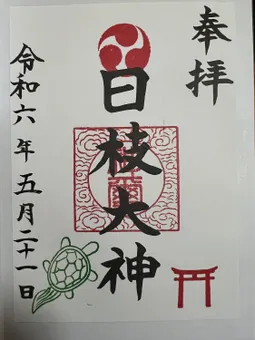 奉拝
日枝大神
令和六年五月二十一日